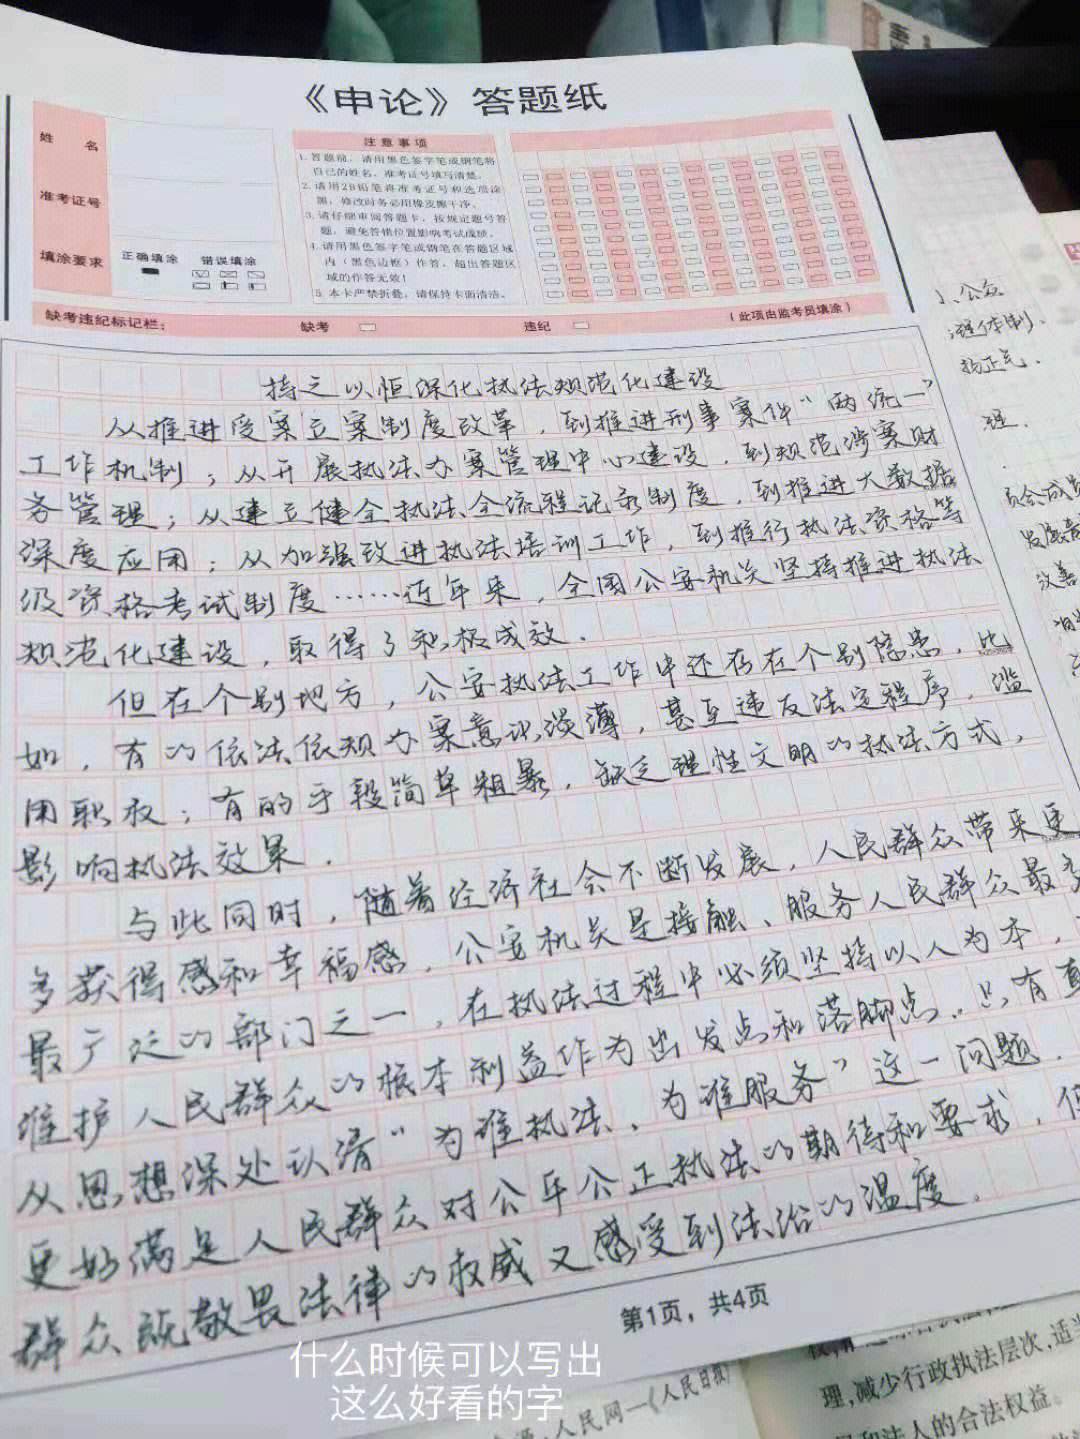 《申论》答题纸
姓 名
准考证号
填涂要求
正确填涂 错误填涂
注意事项
1.答题前,请用黑色签字笔或钢笔将
自己的姓名、准考证号填写清楚。
2.请用2B铅笔将准考证号和选项涂
黑,修改时务必用橡皮擦干净。
3.请仔细审阅答题卡,按规定题号答
题,避免答错位置影响考试成绩。
4.请用黑色签字笔或钢笔在答题区域
内(黑色边框)作答,超出答题区
域的作答无效!
5.本卡严禁折叠,请保持卡面清洁。
缺考违纪标记栏: 缺考 违纪 (此项由监考员填涂)
持之以恒深化执法规范化建设
从推进受案立案制度改革,到推进刑事案件“两统一”
工作机制;从开展执法办案管理中心建设,到规范涉案财
务管理;从建立健全执法全流程记录制度,到推进大数据
深度应用;从加强改进执法培训工作,到推行执法资格等
级资格考试制度……近年来,全国公安机关坚持推进执法
规范化建设,取得了积极成效.
但在个别地方,公安执法工作中还存在个别隐患,比
如,有的依法依规办案意识淡薄,甚至违反法定程序,滥
用职权;有的手段简单粗暴,缺乏理性文明的执法方式,
影响执法效果.
与此同时,随着经济社会不断发展,人民群众带来更
多获得感和幸福感,公安机关是接触、服务人民群众最多
最广泛的部门之一,在执法过程中必须坚持以人为本,
维护人民群众的根本利益作为出发点和落脚点.只有真
从思想深处认清“为谁执法、为谁服务”这一问题.
更好满足人民群众对公平公正执法的期待和要求,使
群众既敬畏法律的权威又感受到法治的温度.
第1页,共4页
公众
理体制.
扬正气.
理.
员会成员
改善
理,减少行政执法层次,适当
和法人的合法权益。
人民网—《人民日报》
什么时候可以写出
这么好看的字